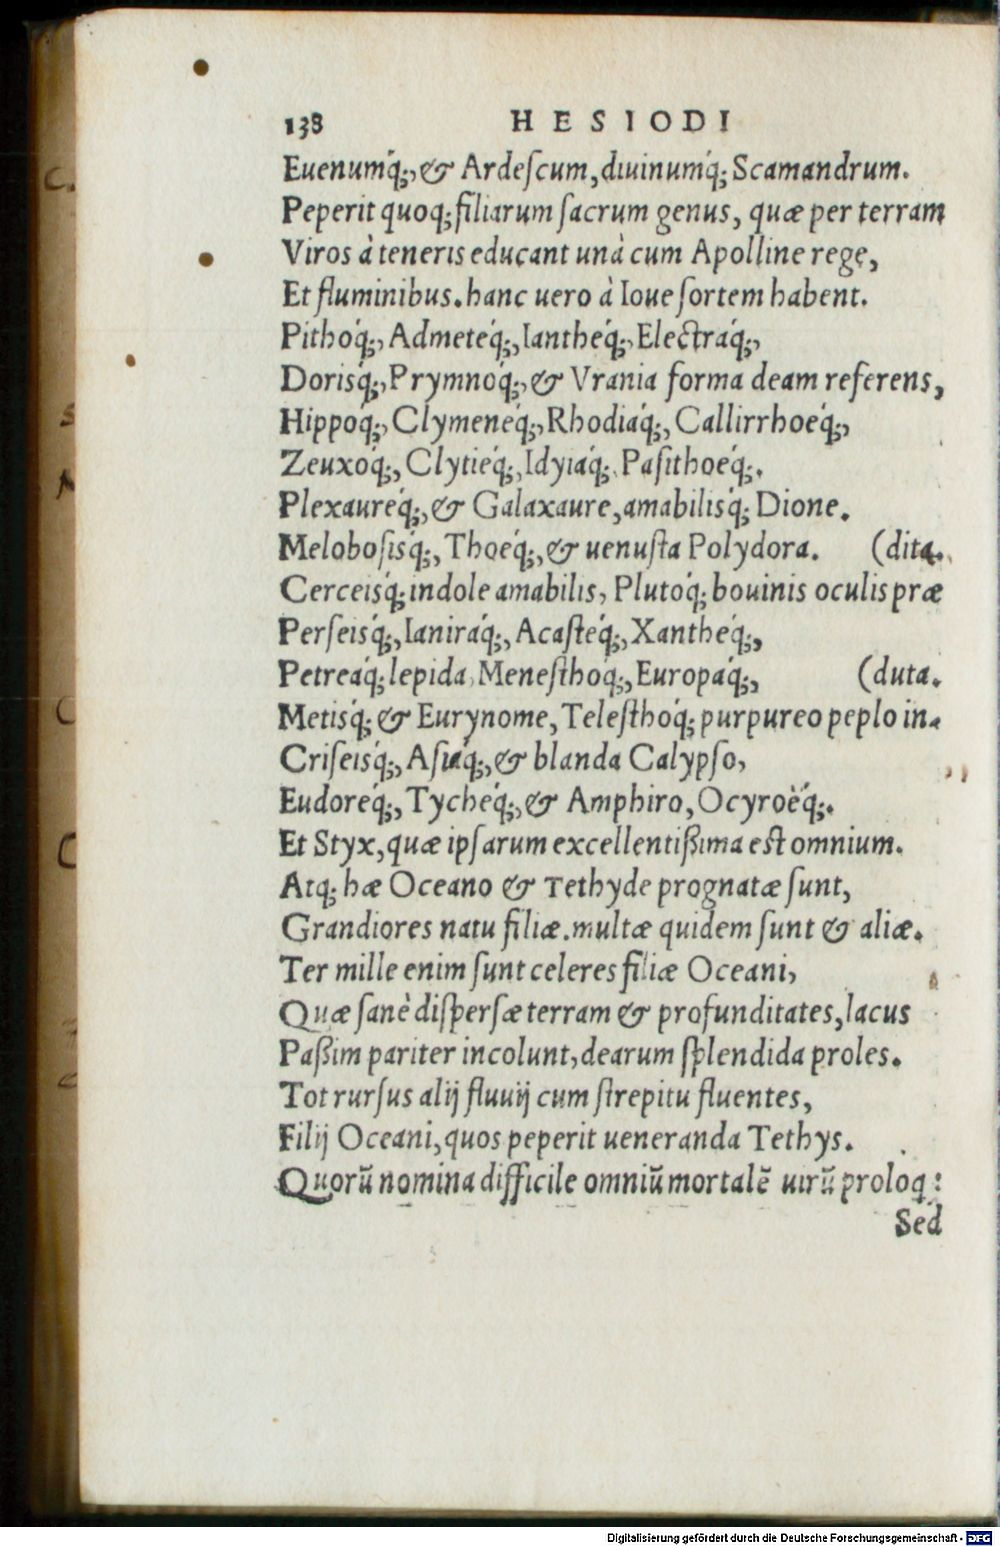 138 HESIODI
Euenumq́;, & Ardeſcum, diuinumq́; Scamandrum.
Peperit quoq; filiarum ſacrum genus, quæ per terram
Viros à teneris educant unà cum Apolline rege,
Et fluminibus. hanc uero à Ioue ſortem habent.
Pithoq́;, Admeteq́;, Iantheq́;, Electraq́;,
Dorisq́;, Prymnoq́;, & Vrania forma deam referens,
Hippoq́;, Clymeneq́;, Rhodiaq́;, Callirrhoeq́;,
Zeuxoq́;, Clytieq́;, Idyiaq́;, Paſithoeq́;.
Plexaureq́;, & Galaxaure, amabilisq́; Dione.
Meloboſisq́;, Thoeq́;, & uenuſta Polydora. (dita.
Cerceisq́; indole amabilis, Plutoq́; bouinis oculis præ
Perſeisq́;, Ianiraq́;, Acaſteq́;, Xantheq́;,
Petreaq́; lepida, Meneſthoq́;, Europaq́;, (duta.
Metisq́; & Eurynome, Teleſthoq́; purpureo peplo in-
Criſeisq́;, Aſiaq́;, & blanda Calypſo,
Eudoreq́;, Tycheq́;, & Amphiro, Ocyroëq́;.
Et Styx, quæ ipſarum excellentiſsima eſt omnium.
Atq; hæ Oceano & Tethyde prognatæ ſunt,
Grandiores natu filiæ. multæ quidem ſunt & aliæ.
Ter mille enim ſunt celeres filiæ Oceani,
Quæ ſanè diſperſæ terram & profunditates, lacus
Paſsim pariter incolunt, dearum ſplendida proles.
Tot rurſus alij fluuij cum ſtrepitu fluentes,
Filij Oceani, quos peperit ueneranda Tethys.
Quorũ nomina difficile omniũ mortalẽ uirũ proloq:
Sed
Digitalisierung gefördert durch die Deutsche Forschungsgemeinschaft - DFG